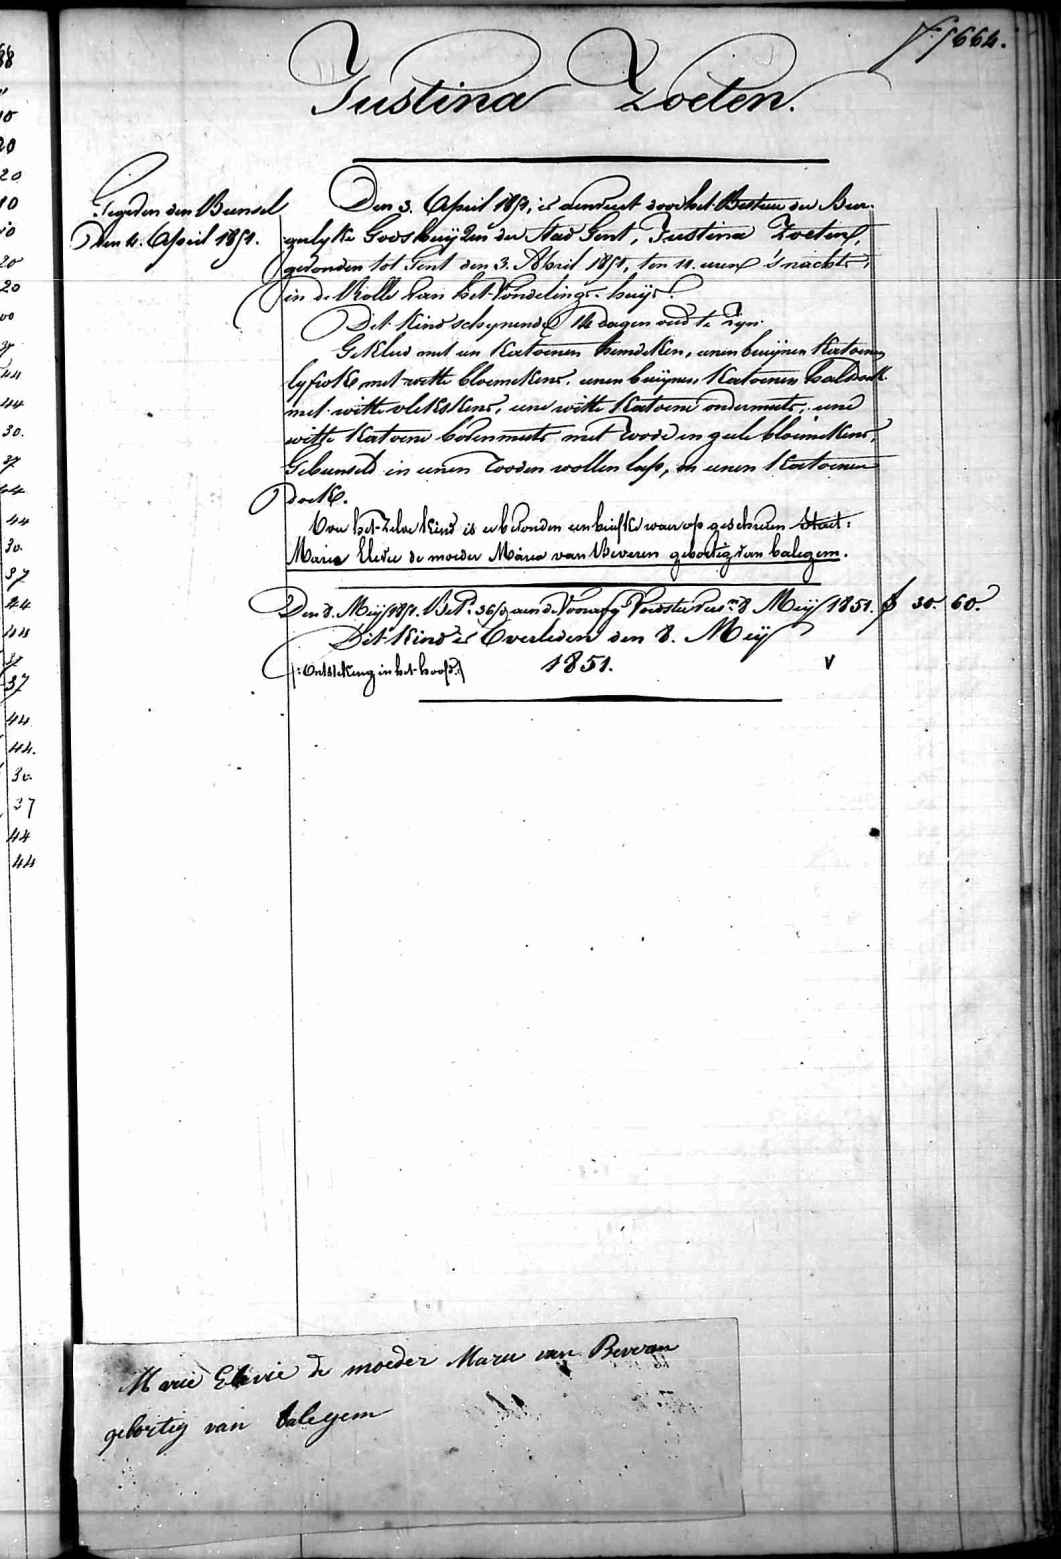 664.
Justina Zoeten.
Gegeven den Bunsel
den 4. April 1851.
Den 3. April 1851, is aenveert door het Bestuer der Bur-
gerlyke Godshuijzen der Stad Gent, Justina Zoeten,
gevonden tot Gent den 3. April 1851, ten 11. uren 's nachts,
in de Rolle van het Vondelings-huijs.
Dit kind schynende 14 dagen oud te zyn.
Gekleed met een katoenen hemdeken, eenen bruijnen katoenen
lyfrok met witte bloemekens, eenen bruijnen katoenen halsdoek
met witte vlekskens, eene witte katoene ondermuts, eene
witte katoene bovenmuts met roode en geele bloemekens,
Gebunseld in eenen rooden wollen lap, en eenen katoenen
doek.
het zelve kind is er bevonden een briefke waer op geschreven staet:
Maria Elevie de moeder Maria van Beveren geboortig van balegem.
Den 8. Meij 1851. Bet. 36/0 aen de Voorzorg Voedster 8 Meij 1851. 30. 60.
Dit kind is Overleden den 8. Meij
1851.
(: Ontsteking in het hoofd :)
V
Marie Elevie de moeder Marie van Beveren
gebortig van balegem
88
10
20
20
10
10
20
20
00
37
44
44
30.
37
44
44
30.
37
44
44
37
37
44
44.
30.
37
44
44